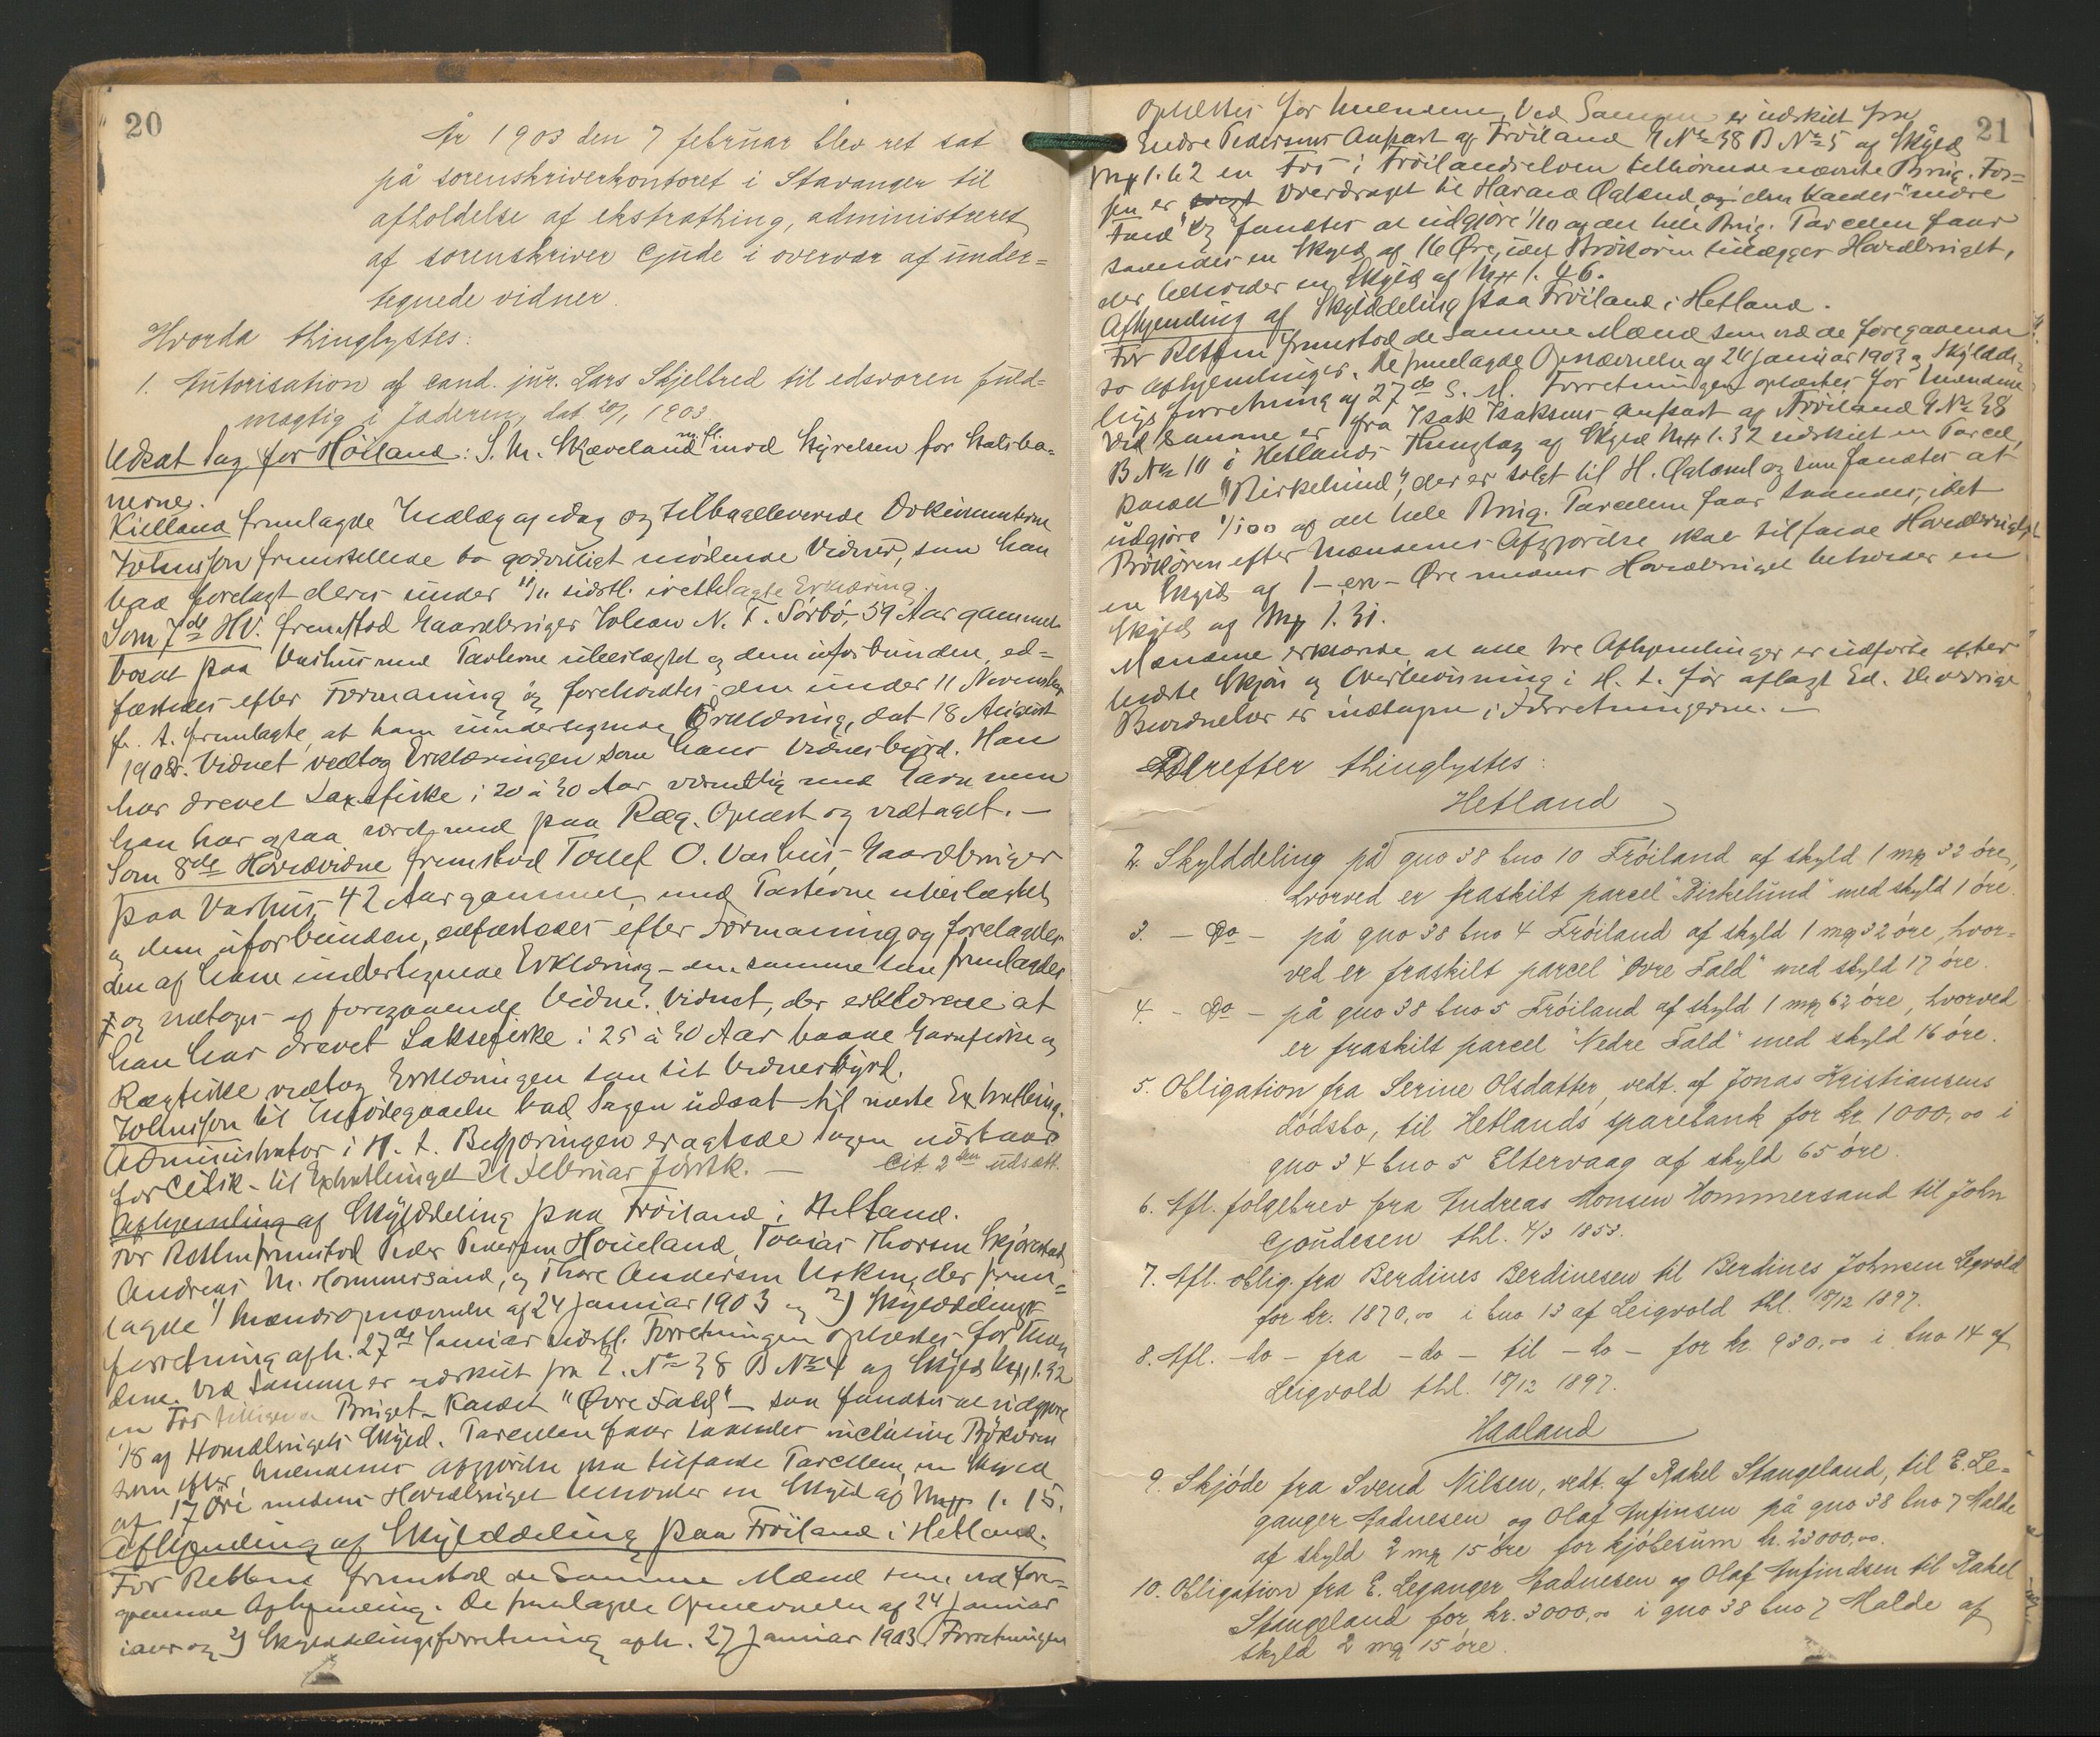 20
År 1903 den 7 februar blev ret sat
på sorenskriverkontoret i Stavanger til
afholdelse af ekstrathing, administreret
af sorenskriver Gjude i overvær af under=
tegnede vidner.
Hvorda thinglystes:
1. Autorisation af cand. jur. Lars Skjelbred til edsvoren fuld-
mægtig i Jæderen, dat 20/1 1903.
Udsat Sag for Höiland: S. M. Skæveland m. fl. mod Styrelsen for Statsba-
nerne.
Kielland fremlagde Indlæg af idag og tilbageleverede Dokumenterne
Johnsson fremstillede to godvilligt mödende Vidner, som han
bad forelagt deres under 11/11 sidstl. irettelagte Erklæring.
Som 7de HV. fremstod Gaardbruger Johan N. T. Sörbö, 59 Aar gammel
bosat paa Vashus med Parterne ubeslægtet og dem uforbunden, ed=
fæstedes efter Formaning og foreholdtes den under 11 November
f. A. fremlagte, af ham undertegnede Erklæring, dat 18 August
1902. Vidnet vedtog Erklæringen som hans Vidnesbyrd. Han
har drevet Laxefiske i 20 à 30 Aar væsentlig med Garn men
han har ogsaa været med paa Ræg. Oplæst og vedtaget. —
Som 8de Hovedvidne fremstod Tollef O. Vashus, Gaardbruger
paa Vashus, 42 Aar gammel, med Parterne ubeslægtet
og dem uforbunden, edfæstedes efter Formaning og forelagdes
den af ham undertegnede Erklæring – den samme som fremlagdes
og vedtoges af foregaaende Vidne. Vidnet, der erklærede at
han har drevet Laksefiske i 25 à 30 Aar baade Garnfiske og
Rægfiske vedtog Erklæringen som sit Vidnesbyrd.
Johnsson til Imödegaaelse bad Sagen udsat til næste Extrathing.
Administrator i H. t. Begjæringen eragtede Sagen udsat
for Citsk. til Extrathinget 21 Februar förstk. — Cit. 2den udsætt.
Afhjemling af Skylddeling paa Fröiland i Hetland.
For Retten fremstod Peder Pedersen Houeland, Tobias Thorsen Skjörestad,
Andreas M. Hommersand, og Thore Andersen Usken, der frem=
lagde 1) Mændsopnævnelse af 24 Januar 1903 og 2) Skylddelings-
forretning afh. 27de Januar sidstl. Forretningen oplæstes for Mæn
dene. Ved Samme er udskilt fra G. No 38 B No 4 af Skyld Mk 1.32
en Fos tilliggende Bruget – kaldet "Övre Fald" – som fandtes at udgjöre
1/8 af Hovedbrugets Skyld. Parcellen faar saaledes inclusive Brökören
som efter Mændenes Afgjörelse skal tilfalde Parcellen, en Skyld
af 17 Öre medens Hovedbruget beholder en Skyld af Mk 1.15.
Afhjemling af Skylddeling paa Fröiland i Hetland.
For Retten fremstod de Samme Mænd som ved fore=
gaaende Afhjemling. De fremlagde Opnævnelse af 24 Januar
iaar og 2) Skylddelingsforretning afh. 27 Januar 1903. Forretningen
21
oplæstes for Mændene. Ved Samme er udskilt fra
Endre Pedersens Anpart af Fröiland G No 38 B No 5 af Skyld
Mk 1.62 en Fos i Fröilandselven tilhörende nævnte Brug. Fos=
sen er solgt Overdraget til Harald Ogland, og den kaldes "nedre
Fald" og fandtes at udgjöre 1/10 af det hele Brug. Parcellen faar
saaledes en Skyld af 16 Öre, idet Brökören tillægges Hovedbruget,
der beholder en Skyld af Mk 1.46.
Afhjemling af Skylddeling paa Fröiland i Hetland.
For Retten fremstod de samme Mænd som ved de foregaaende
to Afhjemlinger. De fremlagde Opnævnelse af 24 Januar 1903 og Skylddе-
lingsforretning af 27de s. M. Forretningen oplæstes for Mændene
Ved Samme er fra Isak Isaksens Anpart af Fröiland G No 38
B No 10 i Hetlands Thinglag af Skyld Mk 1.32 udskilt en Parcel,
kaldet "Birkelund", der er solgt til H. Ogland og som fandtes at
udgjöre 1/100 af det hele Brug. Parcellen faar saaledes, idet
Brökören efter Mændenes Afgjörelse skal tilfalde Hovedbruget
en Skyld af 1 – en – Öre medens Hovedbruget beholder en
Skyld af Mk 1.31.
Mændene erklærede, at alle tre Afhjemlinger er udförte efter
bedste Skjön og Overbevisning i H. t. för aflagt Ed. De övrige
er indtagne i Forretningerne. —
Derefter thinglystes:
Hetland
2. Skylddeling på gno 38 bno 10 Fröiland af skyld 1 mrk 32 öre,
hvorved er fraskilt parcel "Birkelund" med skyld 1 öre.
3. – Do – på gno 38 bno 4 Fröiland af skyld 1 mrk 32 öre, hvor=
ved er fraskilt parcel "Övre Fald" med skyld 17 öre.
4. – Do – på gno 38 bno 5 Fröiland af skyld 1 mrk 62 öre, hvorved
er fraskilt parcel "Nedre Fald" med skyld 16 öre.
5. Obligation fra Serine Olsdatter, vedt. af Jonas Kristiansens
dödsbo, til Hetlands sparebank for kr. 1000,00 i
gno 34 bno 5 Eltervaag af skyld 65 öre.
6. Afl. fölgebrev fra Andreas Monsen Hommersand til John
Gjoudesen thl. 4/3 1853.
7. Afl. oblig. fra Berdines Berdinesen til Berdines Johnsen Leqvold
for kr. 1870,00 i bno 13 af Leigvold thl. 18/12 1897.
8. Afl. – do – fra – do – til – do – for kr. 930,00 i bno 14 af
Leigvold thl. 18/12 1897.
Haaland
9. Skjöde fra Svend Nilsen, vedt. af Rakel Stangeland, til E. Le=
ganger Aadnesen og Olaf Anfinsen på gno 38 bno 7 Malde
af skyld 2 mrk 15 öre for kjöbesum kr. 23000,00.
10. Obligation fra E. Leganger Aadnesen og Olaf Anfindsen til Rakel
Stangeland for kr. 3000,00 i gno 38 bno 7 Malde af
skyld 2 mrk 15 öre.